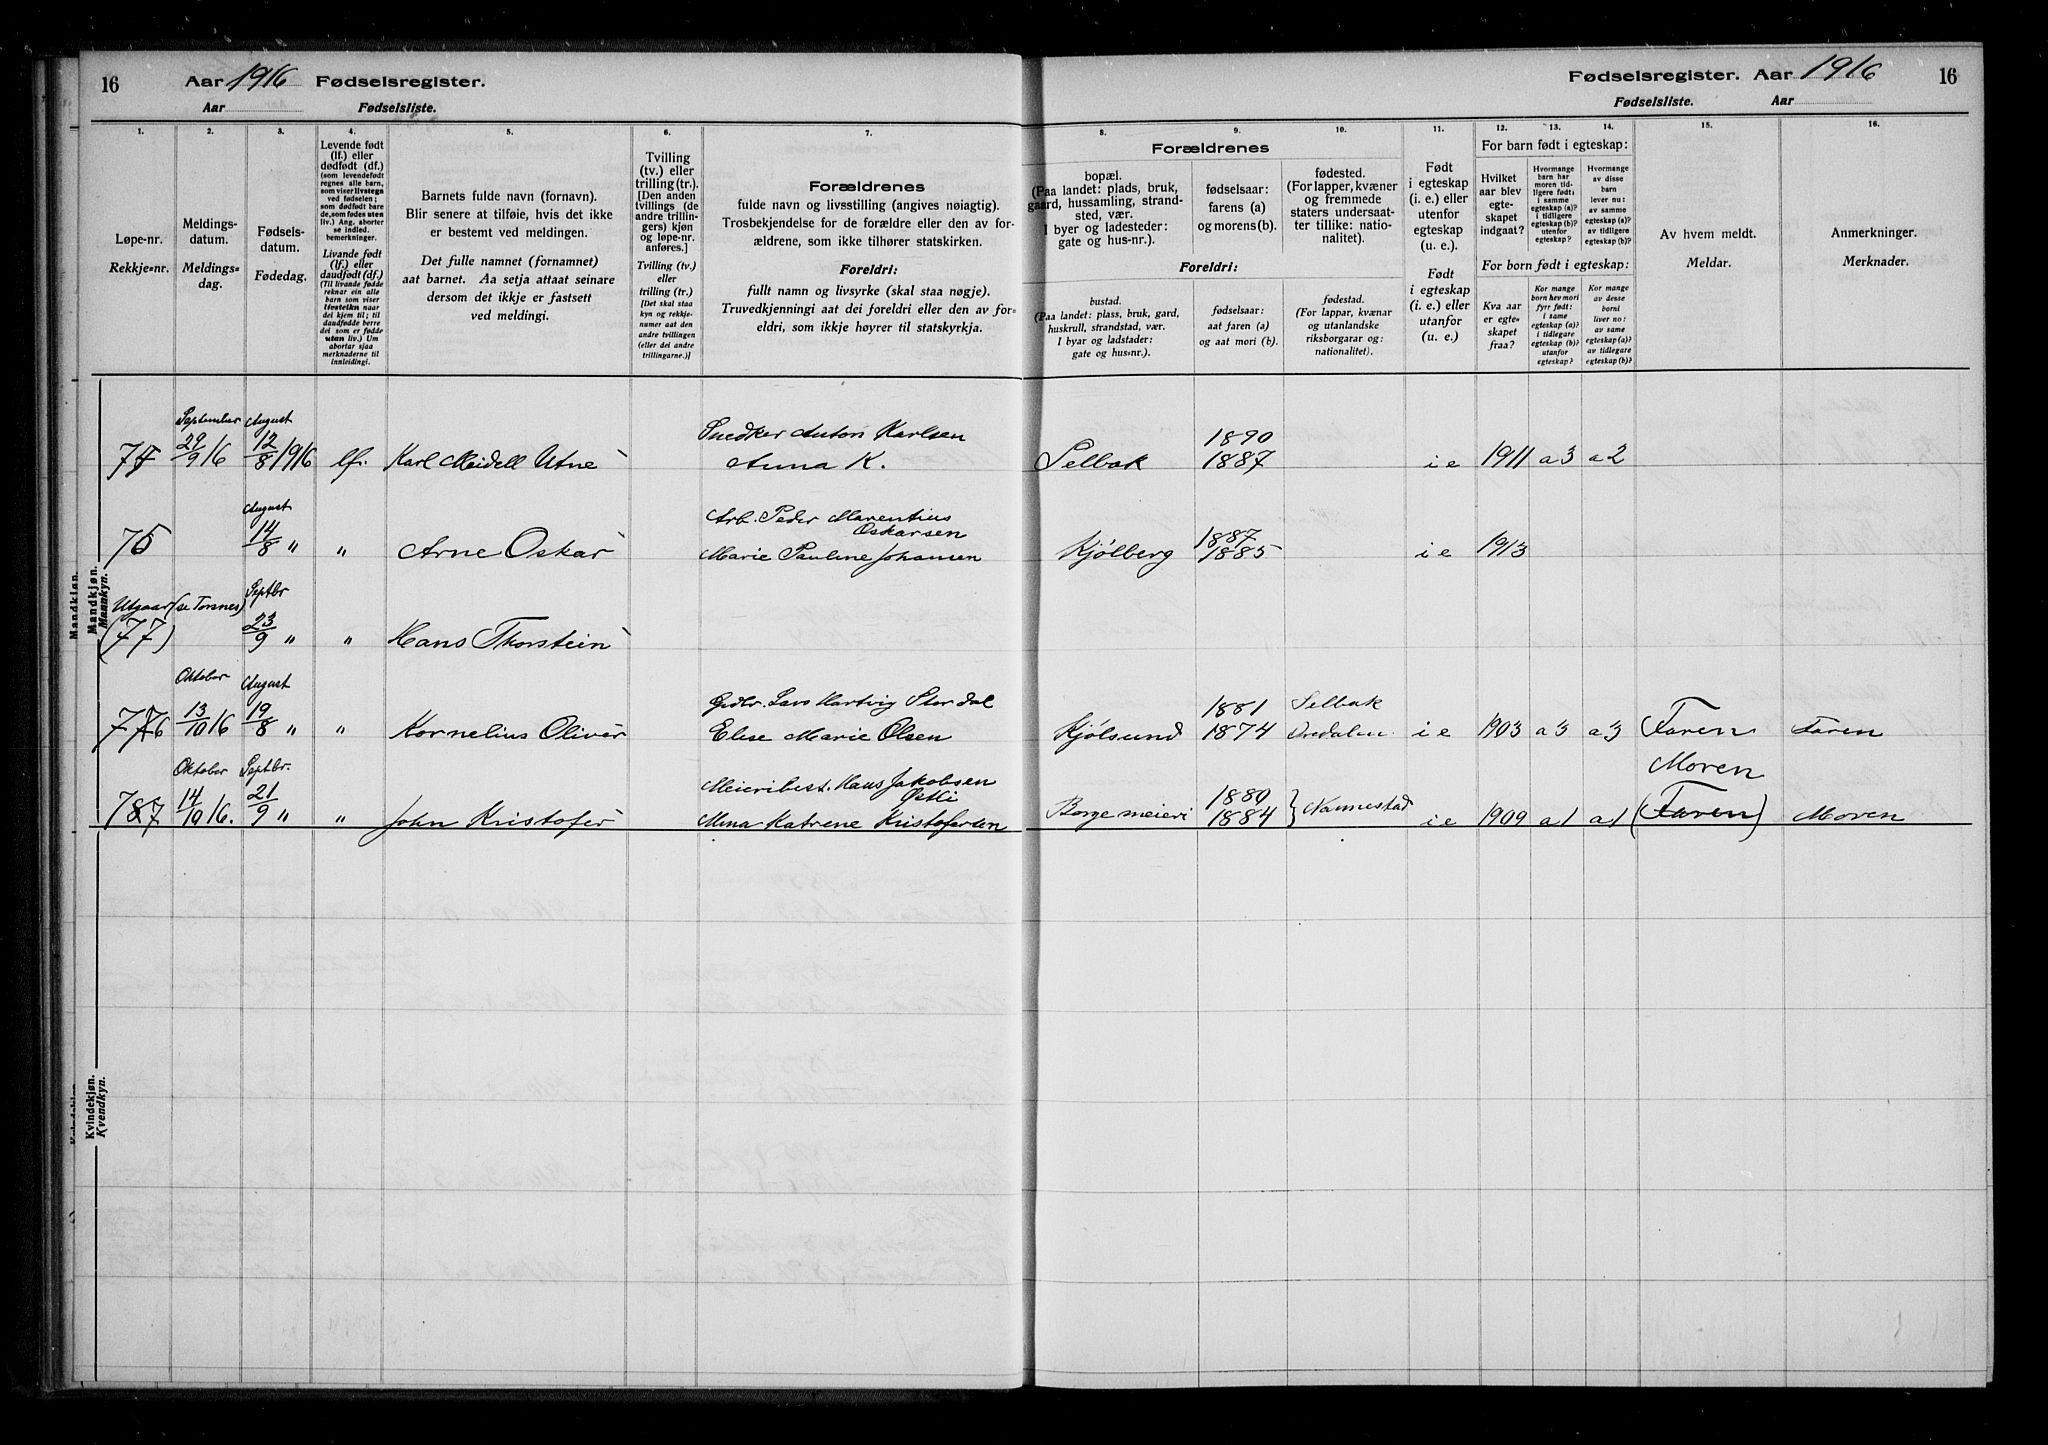 16 Aar 1916 Fødselsregister.
Aar Fødselsliste.
Fødselsregister. Aar 1916 16
Fødselsliste. Aar
1. 2. 3. 4. 5. 6. 7. 8. 9. 10. 11. 12. 13. 14. 15. 16.
Løpe-nr.
Rekkje=nr.
Meldings-
datum.
Meldings=
dag.
Fødsels-
datum.
Fødedag.
Levende født
(lf.) eller
dødfødt (df.)
(som levendefødt
regnes alle barn,
som viser livstegn
ved fødselen;
som dødfødt bare
de, som fødes uten
liv.) Ang. aborter
se indled.
bemerkninger.
Livande født
(lf.) eller
daudfødt (df.)
(Til livande fødde
reknar ein alle
barn som viser
livsteikn naar
dei kjem til; til
daudfødde berre
dei som er fødde
utan liv.) Um
abortar sjaa
merknaderne til
innleidingi.
Barnets fulde navn (fornavn).
Blir senere at tilføie, hvis det ikke
er bestemt ved meldingen.
Det fulle namnet (fornamnet)
aat barnet. Aa setja attaat seinare
dersom det ikkje er fastsett
ved meldingi.
Tvilling
(tv.) eller
trilling (tr.).
[Den anden
tvillings (de
andre trillin-
gers) kjøn
og løpe-nr.
anføres.]
Tvilling (tv.)
eller
trilling (tr.)
[Det skal staa
kyn og rekkje-
numer aat den
andre tvillingen
(eller dei andre
trillingarne.)]
Forældrenes
fulde navn og livsstilling (angives nøiagtig).
Trosbekjendelse for de forældre eller den av for-
ældrene, som ikke tilhører statskirken.
Foreldri:
fullt namn og livsyrke (skal staa nøgje).
Truvedkjenningi aat dei foreldri eller den av for-
eldri, som ikkje høyrer til statskyrkja.
Forældrenes
bopæl.
(Paa landet: plads, bruk,
gaard, hussamling, strand-
sted, vær.
I byer og ladesteder:
gate og hus-nr.).
fødselsaar:
farens (a)
og morens (b).
fødested.
(For lapper, kvæner
og fremmede
staters undersaat-
ter tillike: natio-
nalitet).
Foreldri:
bustad.
(Paa landet: plass, bruk, gard,
huskrull, strandstad, vær.
I byar og ladstader:
gate og hus=nr.).
fødselsaar:
aat faren (a)
og aat mori (b).
fødestad.
(For lappar, kvænar
og utanlandske
riksborgarar og:
nationalitet).
Født
i egteskap
(i. e.) eller
utenfor
egteskap
(u. e.).
Født
i egteskap
(i. e.) eller
utanfor
(u. e.).
For barn født i egteskap:
Hvilket
aar blev
egte-
skapet
indgaat?
Hvormange
barn har
moren tid-
ligere født:
i samme
egteskap (a)?
i tidligere
egteskap (b)?
utenfor
egteskap?
Hvormange
av disse
barn
lever nu:
av samme
egteskap (a)?
av tidligere
egteskap (b)?
For born født i egteskap:
Kva aar
er egte-
skapet
fraa?
Kor mange
born hev mori
fyrr født:
i same
egteskap (a)?
i tidlegare
egteskap (b)?
utanfor
egteskap?
Kor mange
av desse
borni
liver no:
av same
egteskap (a)?
av tidlegare
egteskap (b)?
Av hvem meldt.
Meldar.
Anmerkninger.
Merknader.
Mandkjøn.
Mandkjøn.
Mannkyn.
September August
Snedker Anton Karlsen 1890
29/9 16 12/8 1916 lf. Karl Meidell Utne Anna K. Selbak 1887 i e 1911 a 3 a 2
August
Arb. Peder Marentius
Oskarsen 1887
14/8 " " Arne Oskar Marie Pauline Johansen Kjölberg 1885 i e 1913
Utgaar (se Torsnes) Septbr
(77) 23/9 " " Hans Thorstein
Oktober August
Gdbr. Lars Hartvig Stordal 1881 Selbak
13/10 16 19/8 " " Kornelius Oliver Elise Marie Olsen Kjölsund 1874 i e 1903 a 3 a 3 Faren Faren
Oktober Septbr.
Meieribest. Hans Jakobsen
Østli 1880 Moren
14/10 16. 21/9 " " John Kristofer Mina Katrene Kristofersen Borge meieri 1884 } Nannestad i e 1909 a 1 a 1 (Faren) Moren
Kvindekjøn.
Kvendkyn.